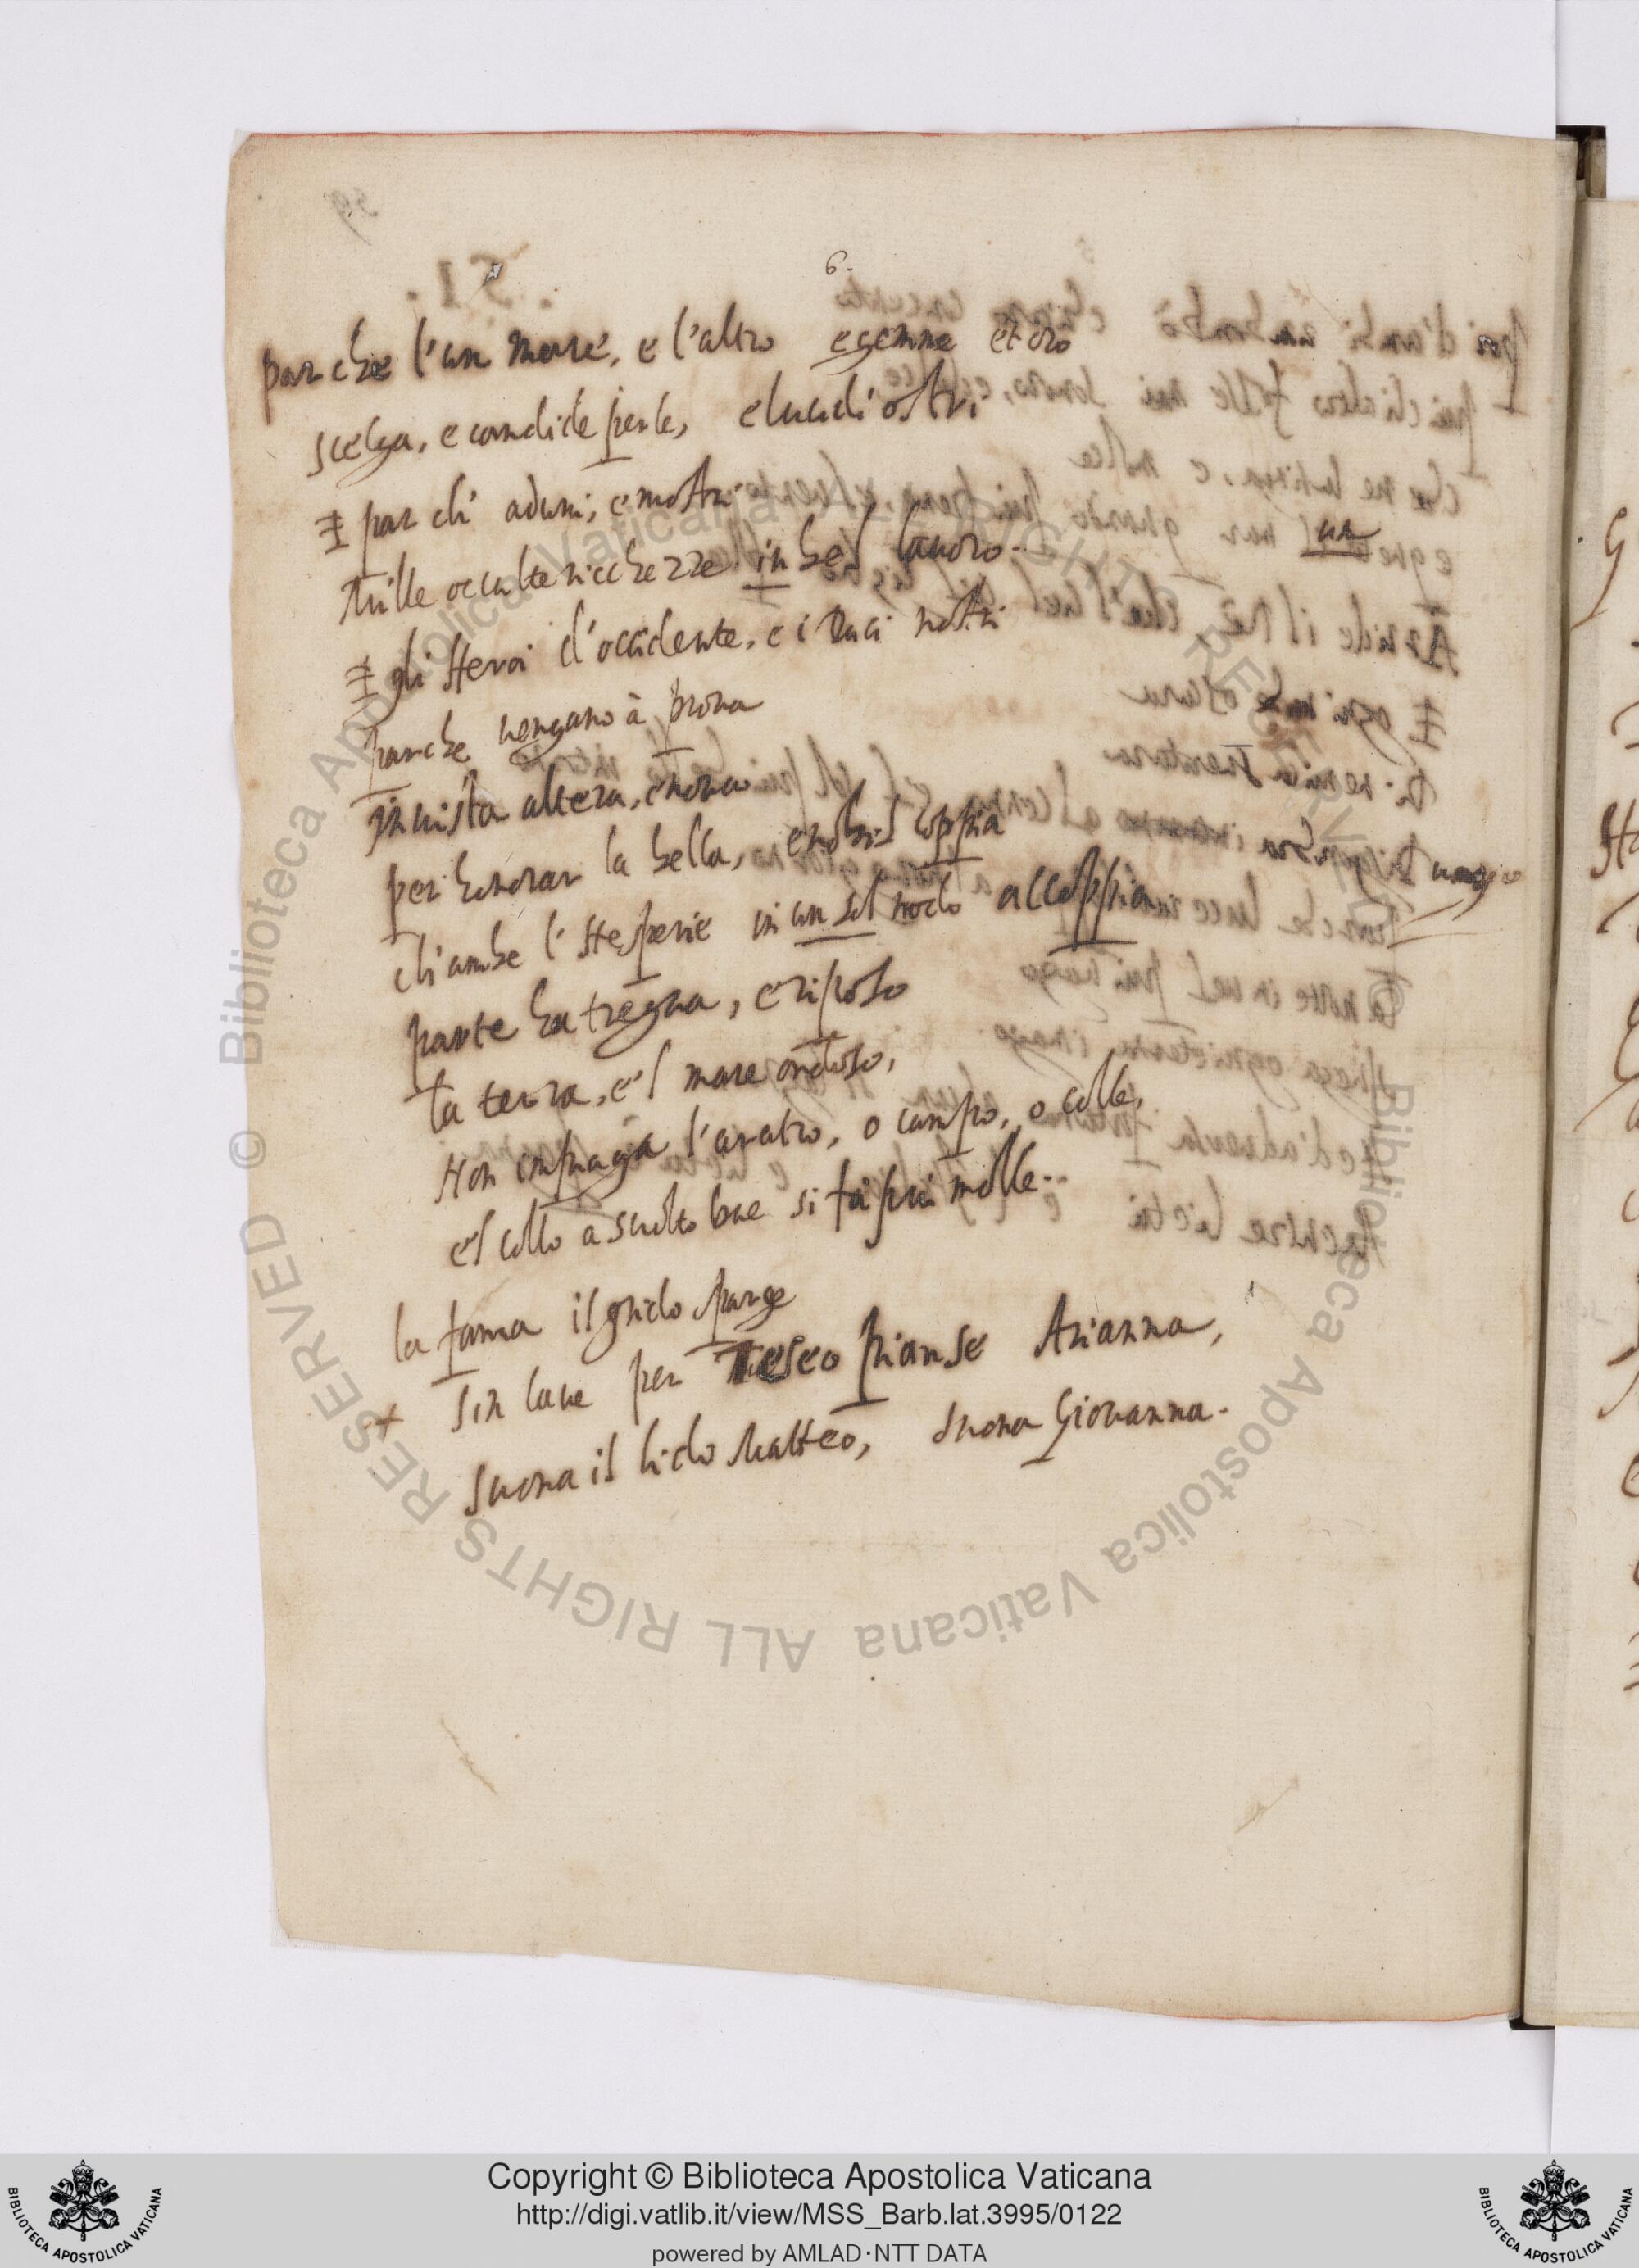 6.
par che l'un mare, e l'altro e gemme et oro
scelga, e candide perle, e lucidi ostri
E par ch' aduni, e mostri
Mille occulte ricchezze in bel lauoro.
E gli Heroi d'occidente, e i Duci nostri
par che uengano à proua
in uista altera, e noua
per honorar la bella, e nobil coppia
ch'ambe l'Hesperie in un sol nodo accoppia
parte ha tregua, e riposo
la terra, e'l mare ondoso,
Non impiaga l'aratro, o campo, o colle,
e'l collo a sciolto bue si fà più molle.
la fama il grido sparge
+ Sin laue per Teseo pianse Arianna,
suona il lido Matteo, suona Giouanna.
Copyright © Biblioteca Apostolica Vaticana
http://digi.vatlib.it/view/MSS_Barb.lat.3995/0122
powered by AMLAD·NTT DATA
BIBLIOTECA APOSTOLICA VATICANA
BIBLIOTECA APOSTOLICA VATICANA
© Biblioteca Apostolica Vaticana ALL RIGHTS RESERVED
© Biblioteca Apostolica Vaticana ALL RIGHTS RESERVED